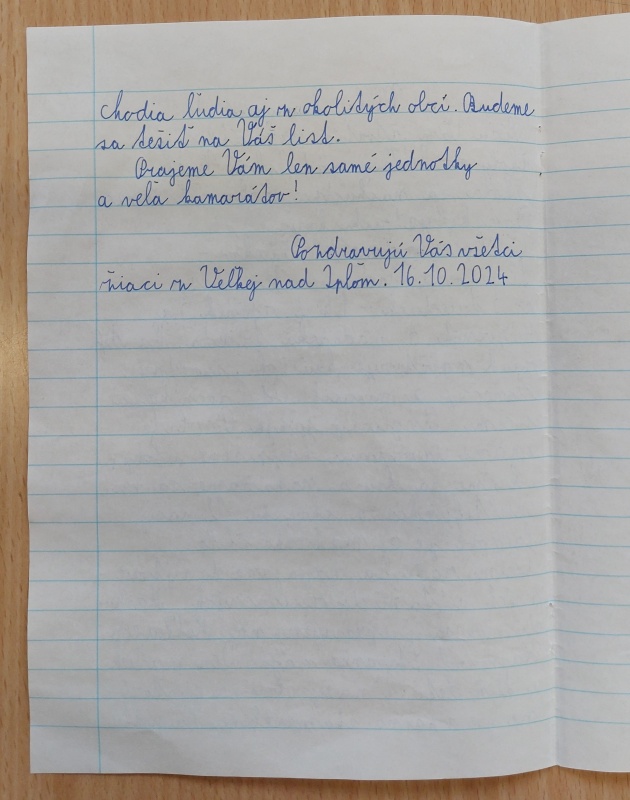 chodia ľudia aj z okolitých obcí. Budeme
sa tešiť na Váš list.
Prajeme Vám len samé jednotky
a veľa kamarátov!
Pozdravujú Vás všetci
žiaci z Veľkej nad Ipľom. 16.10.2024